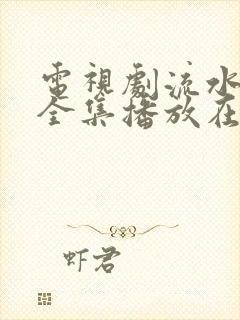 電視劇流水
全集播放在
虾君